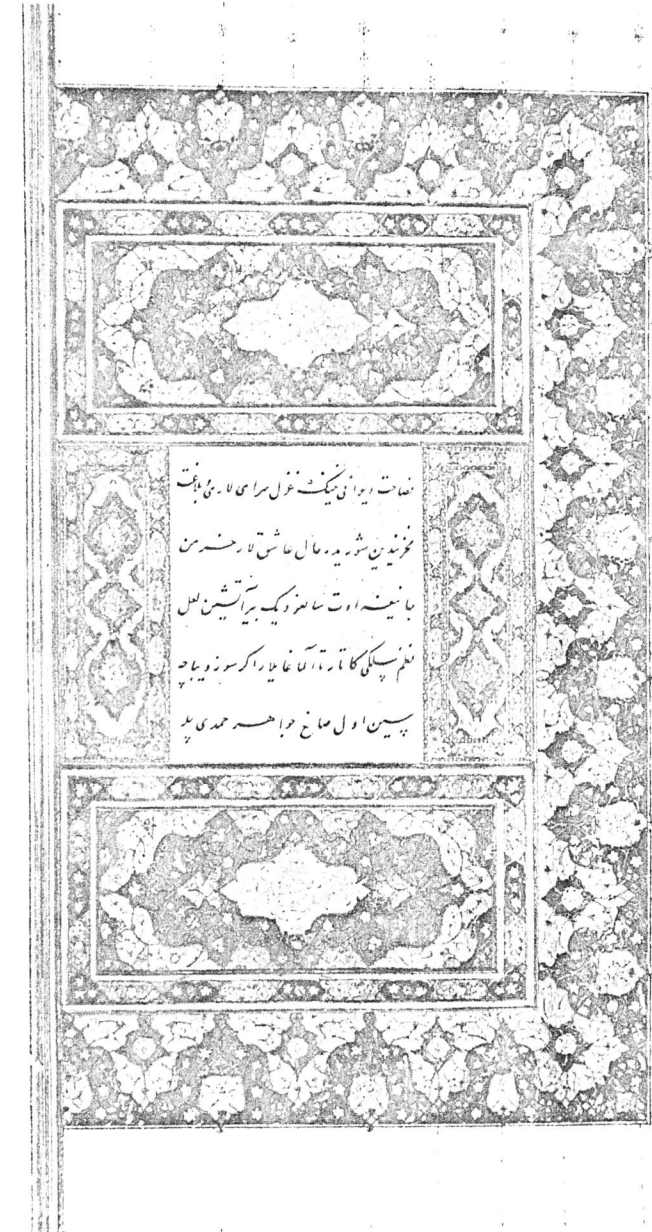 فصاحت دیوانی نینک غزل سرای لاری بلاغت
مخزنیدین شوریده حال عاشق لار خرمن
جانیغه اوت سالغودیک بیر آتشین لعل
نظم سلکی کا تارتاآلماغایلار اگر سوز دیباچه
سین اول صانع جواهر حمدی بیله